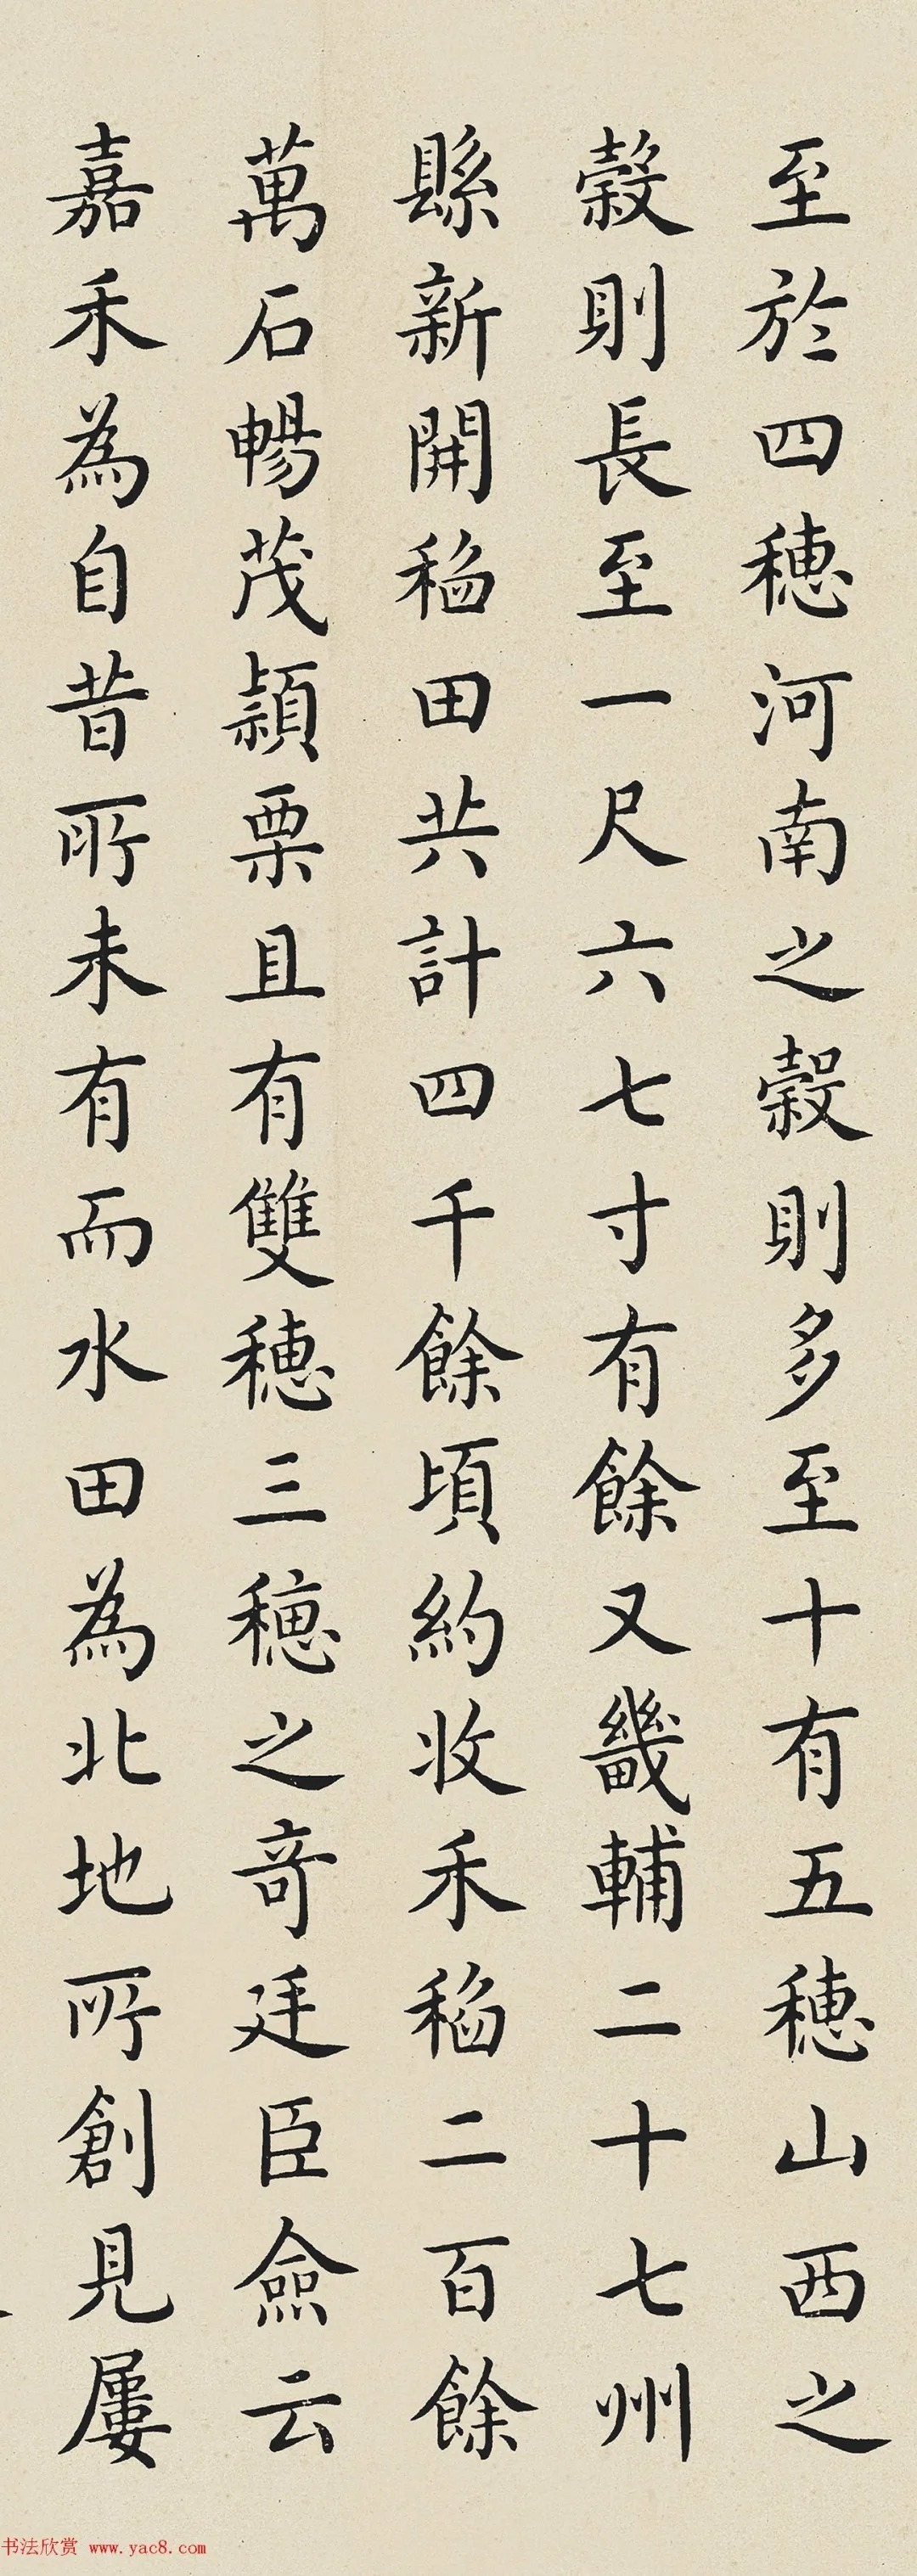 至於四穗河南之穀則多至十有五穗山西之
穀則長至一尺六七寸有餘又畿輔二十七州
縣新開稻田共計四千餘頃約收禾稻二百餘
萬石暢茂穎栗且有雙穗三穗之奇廷臣僉云
嘉禾為自昔所未有而水田為北地所創見屢
书法欣赏 www.yac8.com